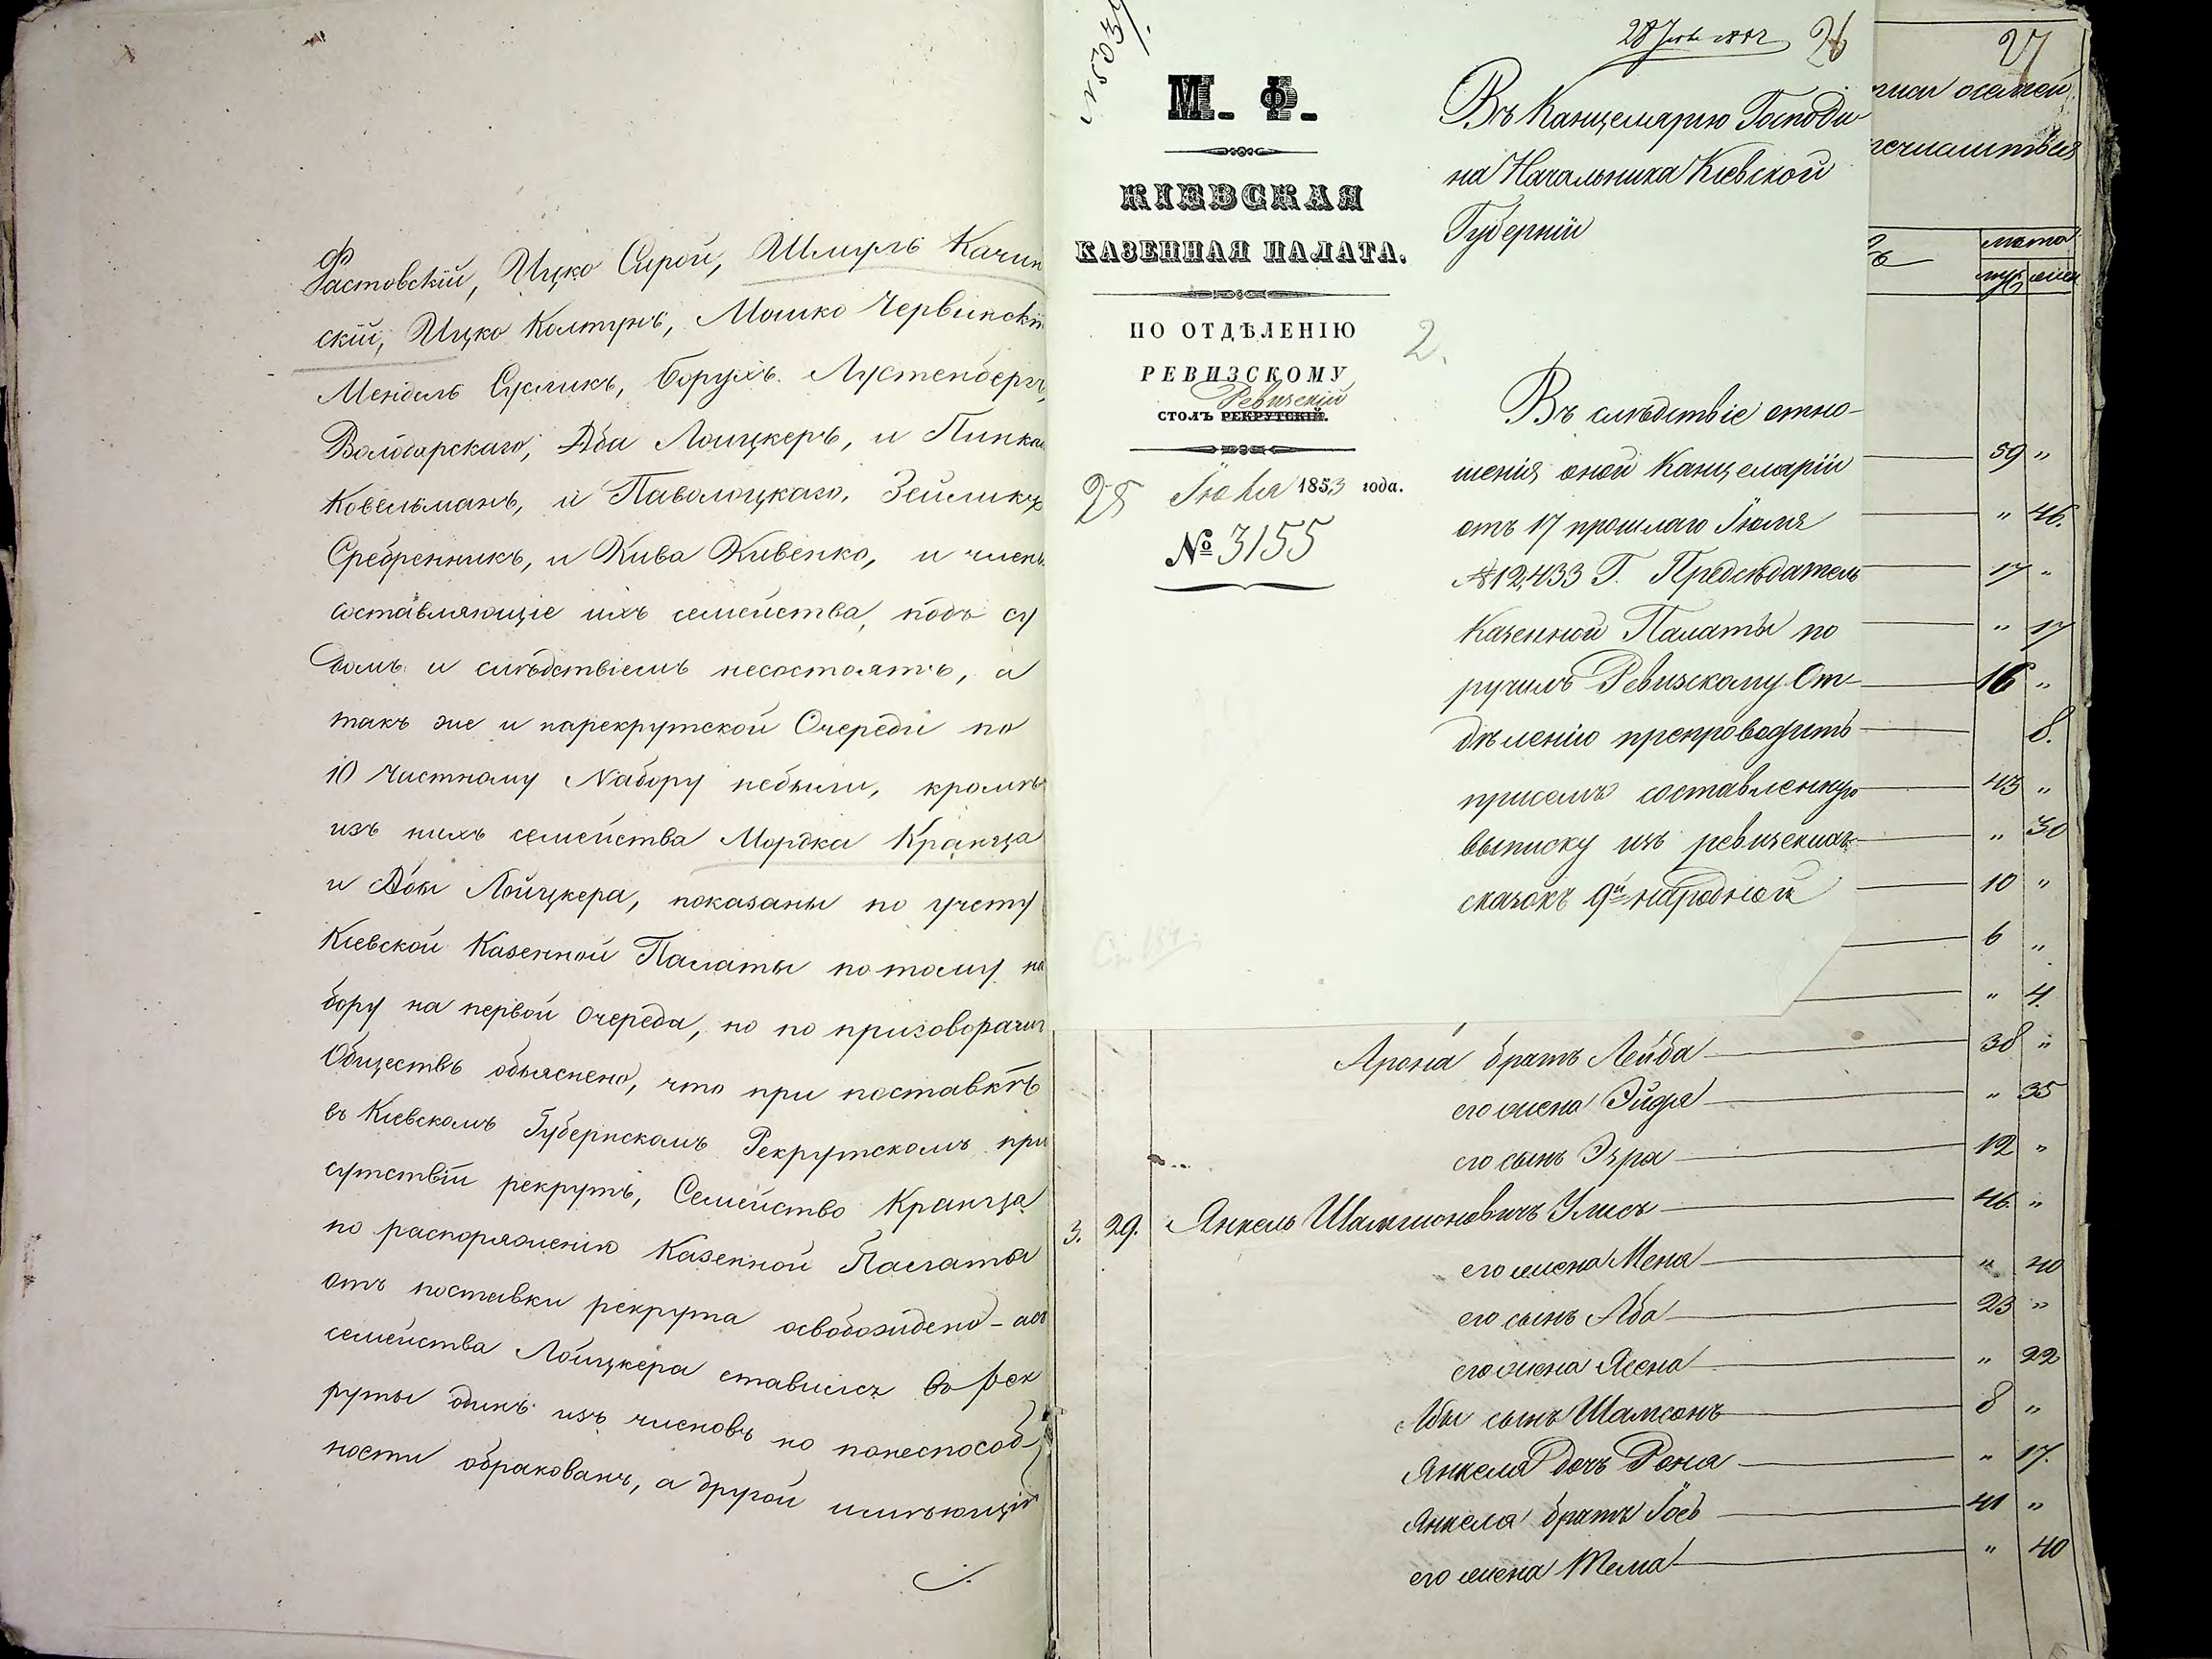 Фастовскій, Ицко Сирой, Шмуль Качин
скій, Ицко Колтунъ, Мошко Червинскій
Мендель Сусликъ, Борухъ Лустенбергъ,
Володарскаго, Аба Лойцкеръ, и Пинхас
Ковельманъ, и Паволоцкаго, Зейликъ
Сребренникъ, и Кива Кивенко, и члены
составляющіе ихъ семейства, подъ су
домъ и слѣдствіемъ несостоятъ, а
такъ же и нарекрутской Очереди по
10 Частному Набору небыли, кромѣ
изъ нихъ семейства Мордка Кранца
и Абы Лойцкера, показаны по учету
Кіевской Казенной Палаты по тому на
бору на первой Очереди, но по приговорами
Обществъ объяснено, что при поставкѣ
въ Кіевскомъ Губернскомъ Рекрутскомъ при
сутствіи рекрутъ, Семейство Кранца
по распоряженію Казенной Палаты
отъ поставки рекрута освобождено - а
семейства Лойцкера ставился въ рек
руты одинъ изъ членовъ но понеспособ-
ности обракованъ, а другой имѣющій
М. Ф.
КІЕВСКАЯ
КАЗЕННАЯ ПАЛАТА.
ПО ОТДѢЛЕНІЮ
РЕВИЗСКОМУ
Ревизскій
СТОЛЪ РЕКРУТСКІЙ.
25 Іюля 1853 года.
№ 3155
28 26
Въ Канцелярію Господи
на Начальника Кіевской
Губерніи
2.
Въ слѣдствіе отно-
шенія оной Канцеляріи
отъ 17 прошлаго Іюля
№ 12,433 Г. Предсѣдатель
Казенной Палаты по
ручилъ Ревизскому От-
дѣленію препроводить
присемъ составленную
выписку изъ ревизскихъ
сказокъ 9й народной
27
59 "
" 46.
17 "
" 17
16 "
8.
43 "
" 30
10 "
6 "
" 4.
Арона братъ Лейба 38 "
его жена Эйдля " 35
его сынъ Эзра 12 "
3. 29. Янкель Шамшоновичъ Улисъ 46. "
его жена Мена " 40
его сынъ Аба 23 "
его жена Ясена " 22
Абы сынъ Шамсонъ 8 "
Янкеля дочь Рона " 17.
Янкеля братъ Іось 41 "
его жена Тема " 40